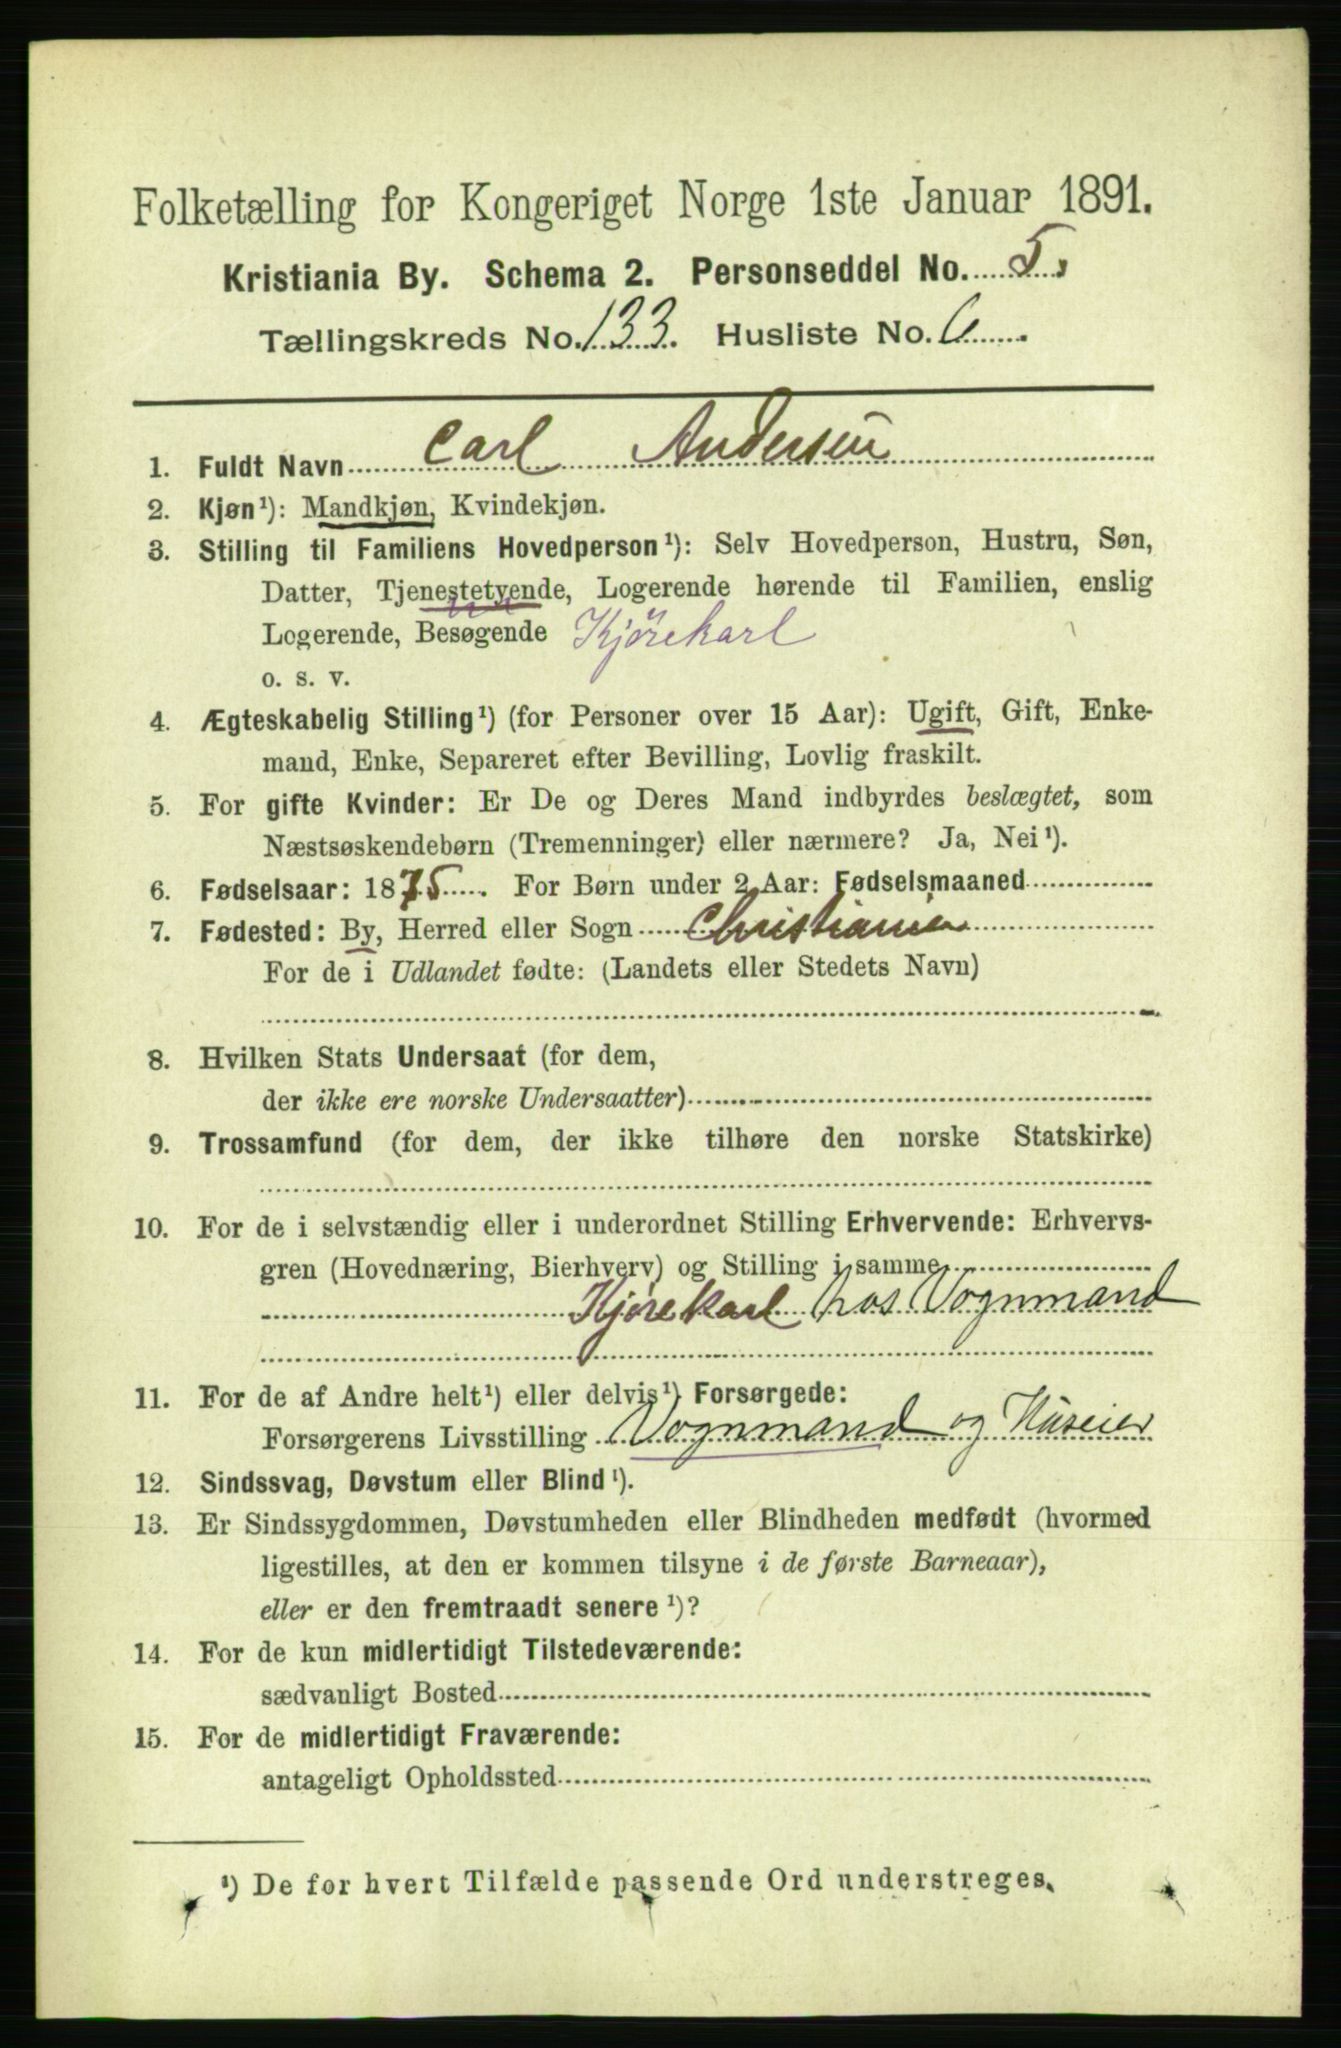 Folketælling for Kongeriget Norge 1ste Januar 1891.
Kristiania By. Schema 2. Personseddel No. 5.
Tællingskreds No. 133. Husliste No. 6
1. Fuldt Navn Carl Andersen
2. Kjøn¹): Mandkjøn, Kvindekjøn.
3. Stilling til Familiens Hovedperson¹): Selv Hovedperson, Hustru, Søn,
Datter, Tjenestetyende, Logerende hørende til Familien, enslig
Logerende, Besøgende Kjörekarl
o. s. v.
4. Ægteskabelig Stilling¹) (for Personer over 15 Aar): Ugift, Gift, Enke-
mand, Enke, Separeret efter Bevilling, Lovlig fraskilt.
5. For gifte Kvinder: Er De og Deres Mand indbyrdes beslægtet, som
Næstsøskendebørn (Tremenninger) eller nærmere? Ja, Nei¹).
6. Fødselsaar: 1875. For Børn under 2 Aar: Fødselsmaaned
7. Fødested: By, Herred eller Sogn Christiania
For de i Udlandet fødte: (Landets eller Stedets Navn)
8. Hvilken Stats Undersaat (for dem,
der ikke ere norske Undersaatter)
9. Trossamfund (for dem, der ikke tilhøre den norske Statskirke)
10. For de i selvstændig eller i underordnet Stilling Erhvervende: Erhvervs-
gren (Hovednæring, Bierhverv) og Stilling i samme
Kjörekarl hos Vognmand
11. For de af Andre helt¹) eller delvis¹) Forsørgede:
Forsørgerens Livsstilling Vognmand og Huseier
12. Sindssvag, Døvstum eller Blind¹).
13. Er Sindssygdommen, Døvstumheden eller Blindheden medfødt (hvormed
ligestilles, at den er kommen tilsyne i de første Barneaar),
eller er den fremtraadt senere¹)?
14. For de kun midlertidigt Tilstedeværende:
sædvanligt Bosted
15. For de midlertidigt Fraværende:
antageligt Opholdssted
¹) De for hvert Tilfælde passende Ord understreges.